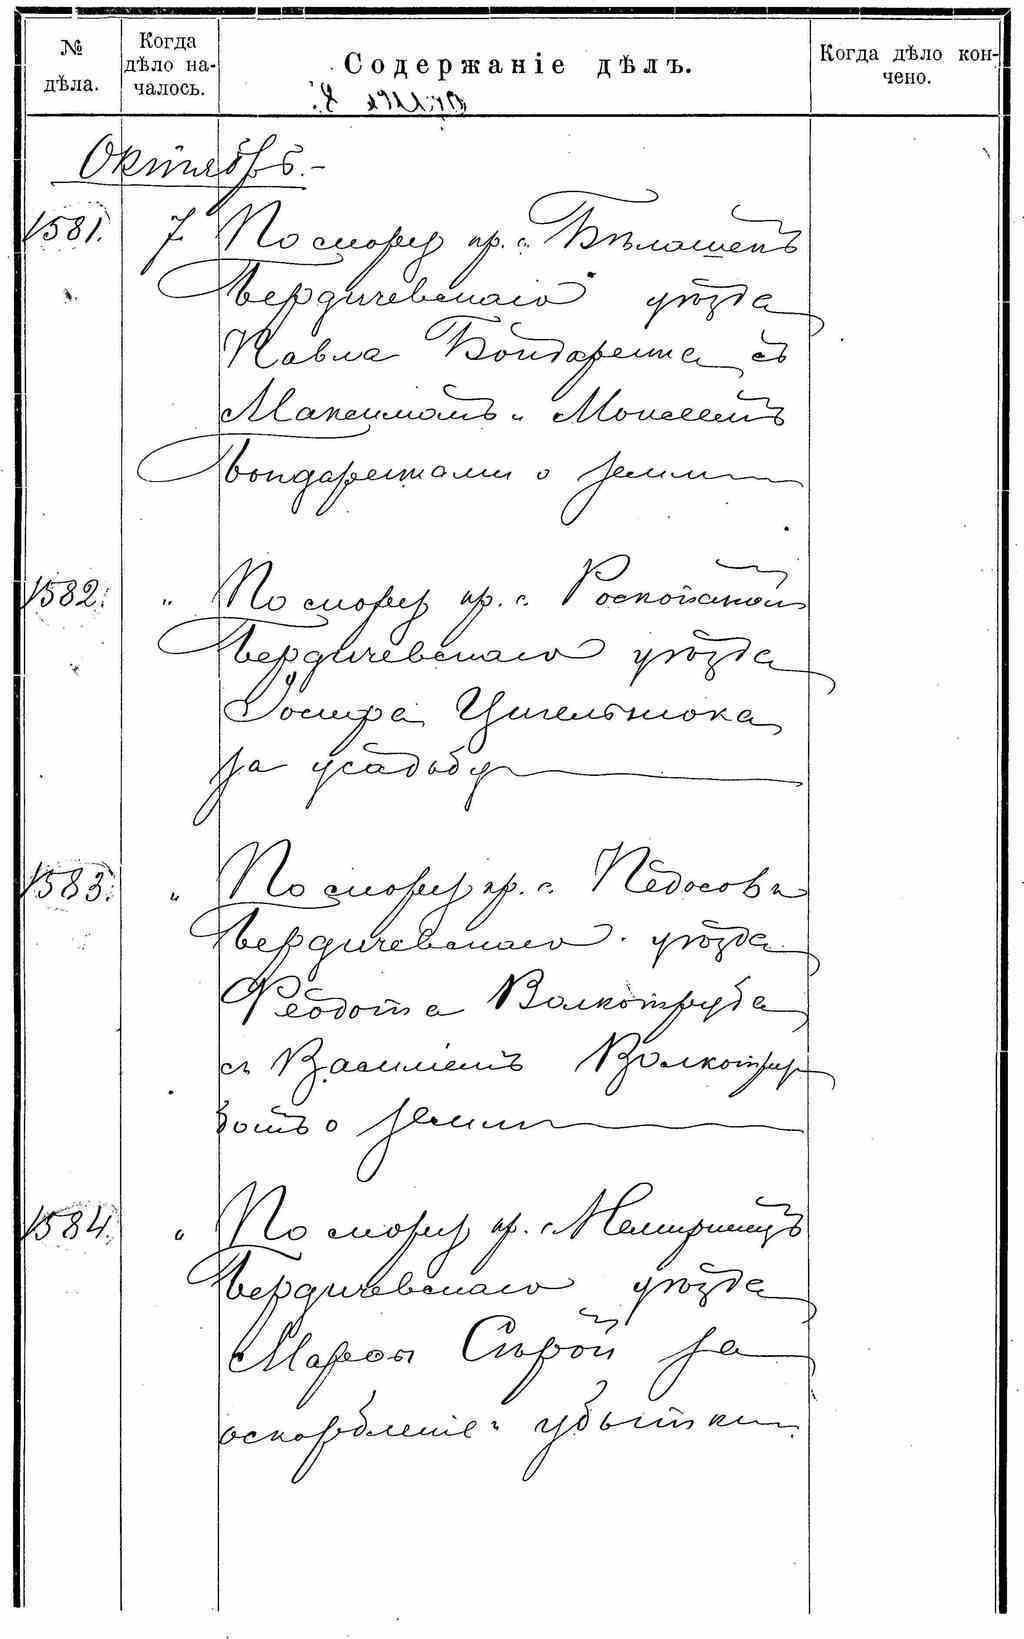 № дѣла.
Когда дѣло на-
чалось.
Содержаніе дѣлъ.
Когда дѣло кон-
чено.
Октябрь.-
1581. 7. По спору кр. с. Бѣлашекъ
Бердичевскаго уѣзда
Павла Бондаренка съ
Максимомъ и Моисеемъ
Бондаренками о земли
1582. " По спору кр. с.
Бердичевскаго уѣзда
Іосифа Цигельнюка
за усадьбу
1583. " По спору кр. с. Педосовки
Бердичевскаго уѣзда
Феодота Волкотруба
съ Василіемъ Волкотру
бомъ о земли
1584. " По спору кр. с. Немиринецъ
Бердичевскаго уѣзда
Марѳы Сѣрой за
оскорбленіе и убытки.